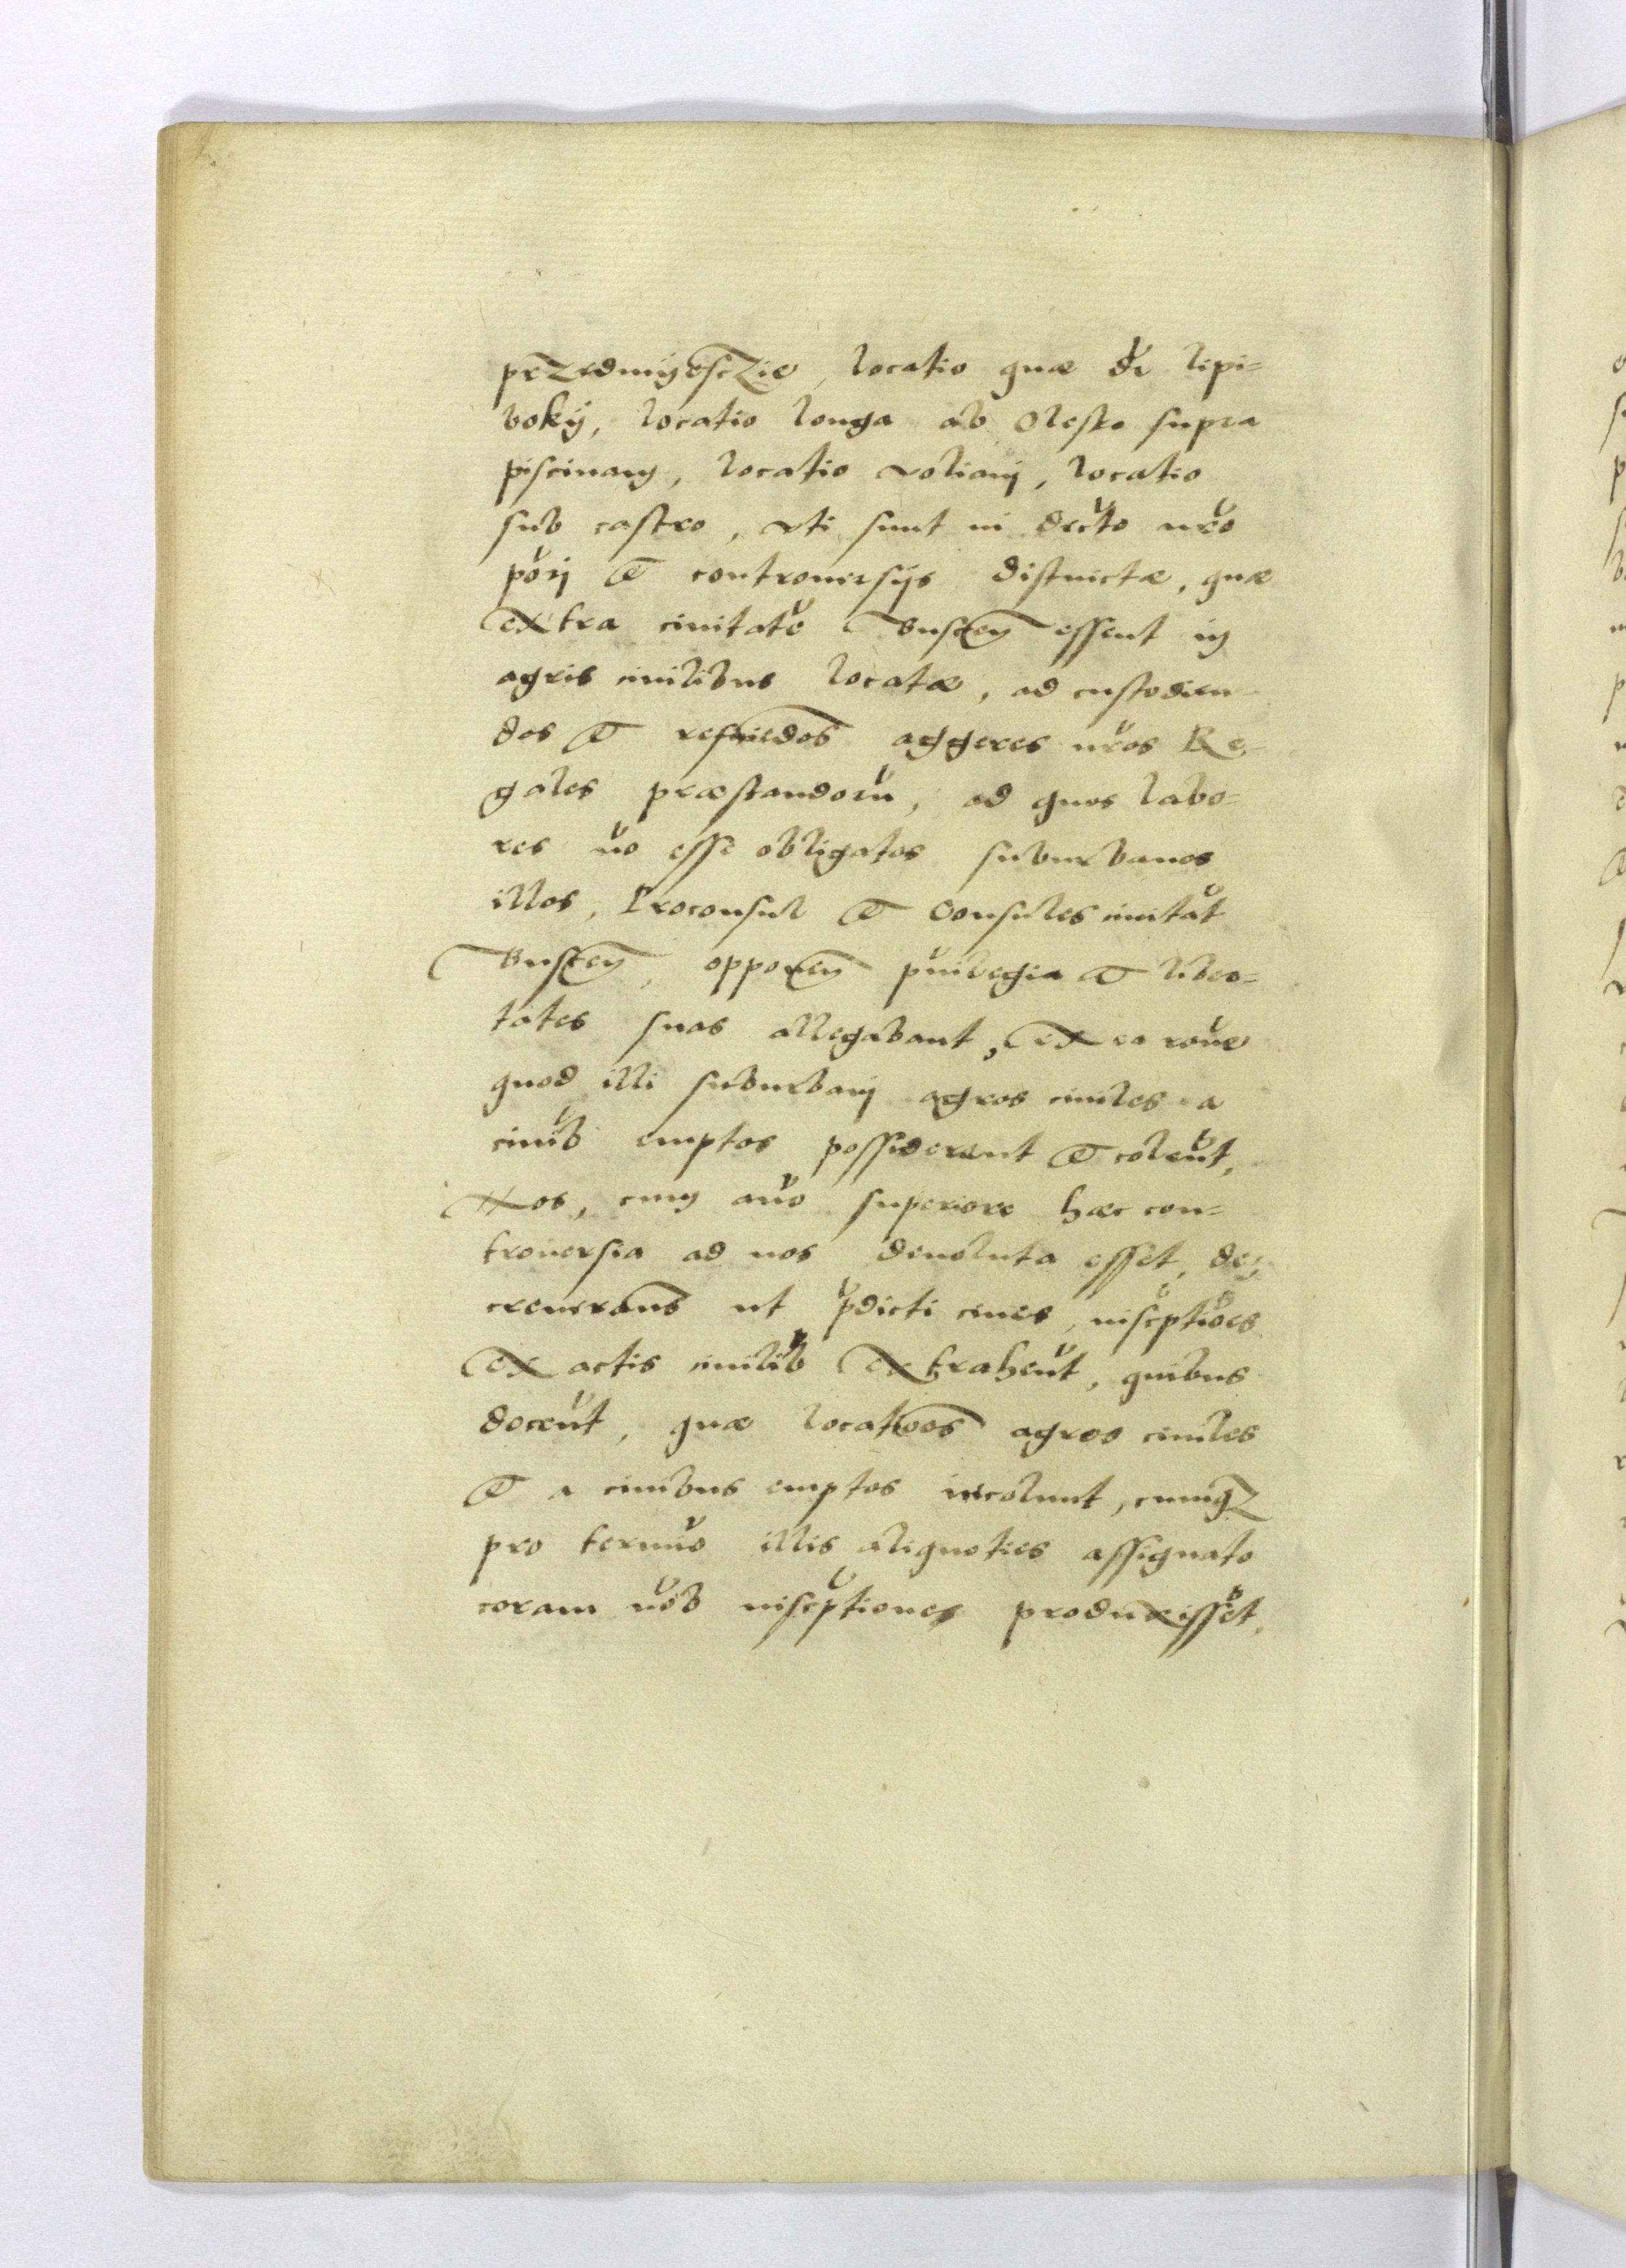 przedmÿesczie, locatio quæ dr̃ lipi=
bokÿ, locatio longa ab Olesko supra
piscinam, locatio voliani, locatio
sub castro, vti sunt in decr̃to nr̃o
põrj et controuersijs distinctæ, quæ
extra ciuitatẽ Buscen̄ essent in
agris ciuilibus locatæ, ad custodien=
dos et reficiẽdos aggeres nr̃os Re=
gales præstandorũ, ad quos labo=
res nõ esse obligatos suburbanos
illos, Proconsul et Consules ciuitat̃
Buscen̄, opponen̄ priũilegia et liber=
tates suas allegabant, ex ea rõne
quod illi suburbani agros ciuiles a
ciuib̃ emptos possiderent et coler̃ut,
Nos, cum añno superiore hæc con=
trouersia ad nos deuoluta esset, de=
creueram̃s ut p̃dicti ciues, inscr̃ptiões
ex actis ciuilib̃ extraher̃ut, quibus
docer̃ut, quæ locatiões agros ciuiles
et a ciuibus emptos incolunt, cumq̃
pro termiño illis aliquoties assignato
coram nob̃ inscr̃ptiones produxissẽt,